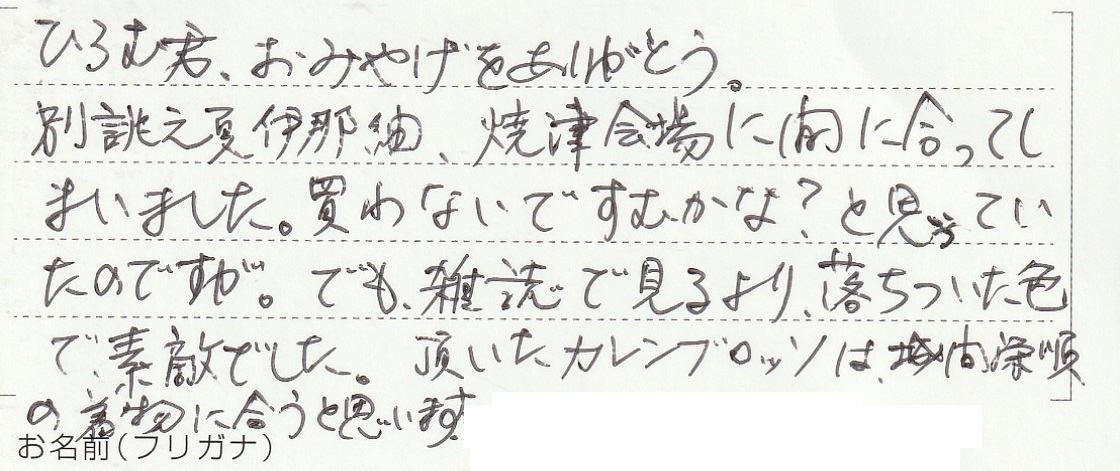 ひろむ君、おみやげをありがとう。
別誂え夏伊那紬、焼津会場に間に合ってし
まいました。買わないですむかな?と思っってい
たのですが。でも、雑誌で見るより、落ちついた色
で、素敵でした。頂いたカレンブロッソは、城間栄順
の着物に合うと思います
お名前(フリガナ)